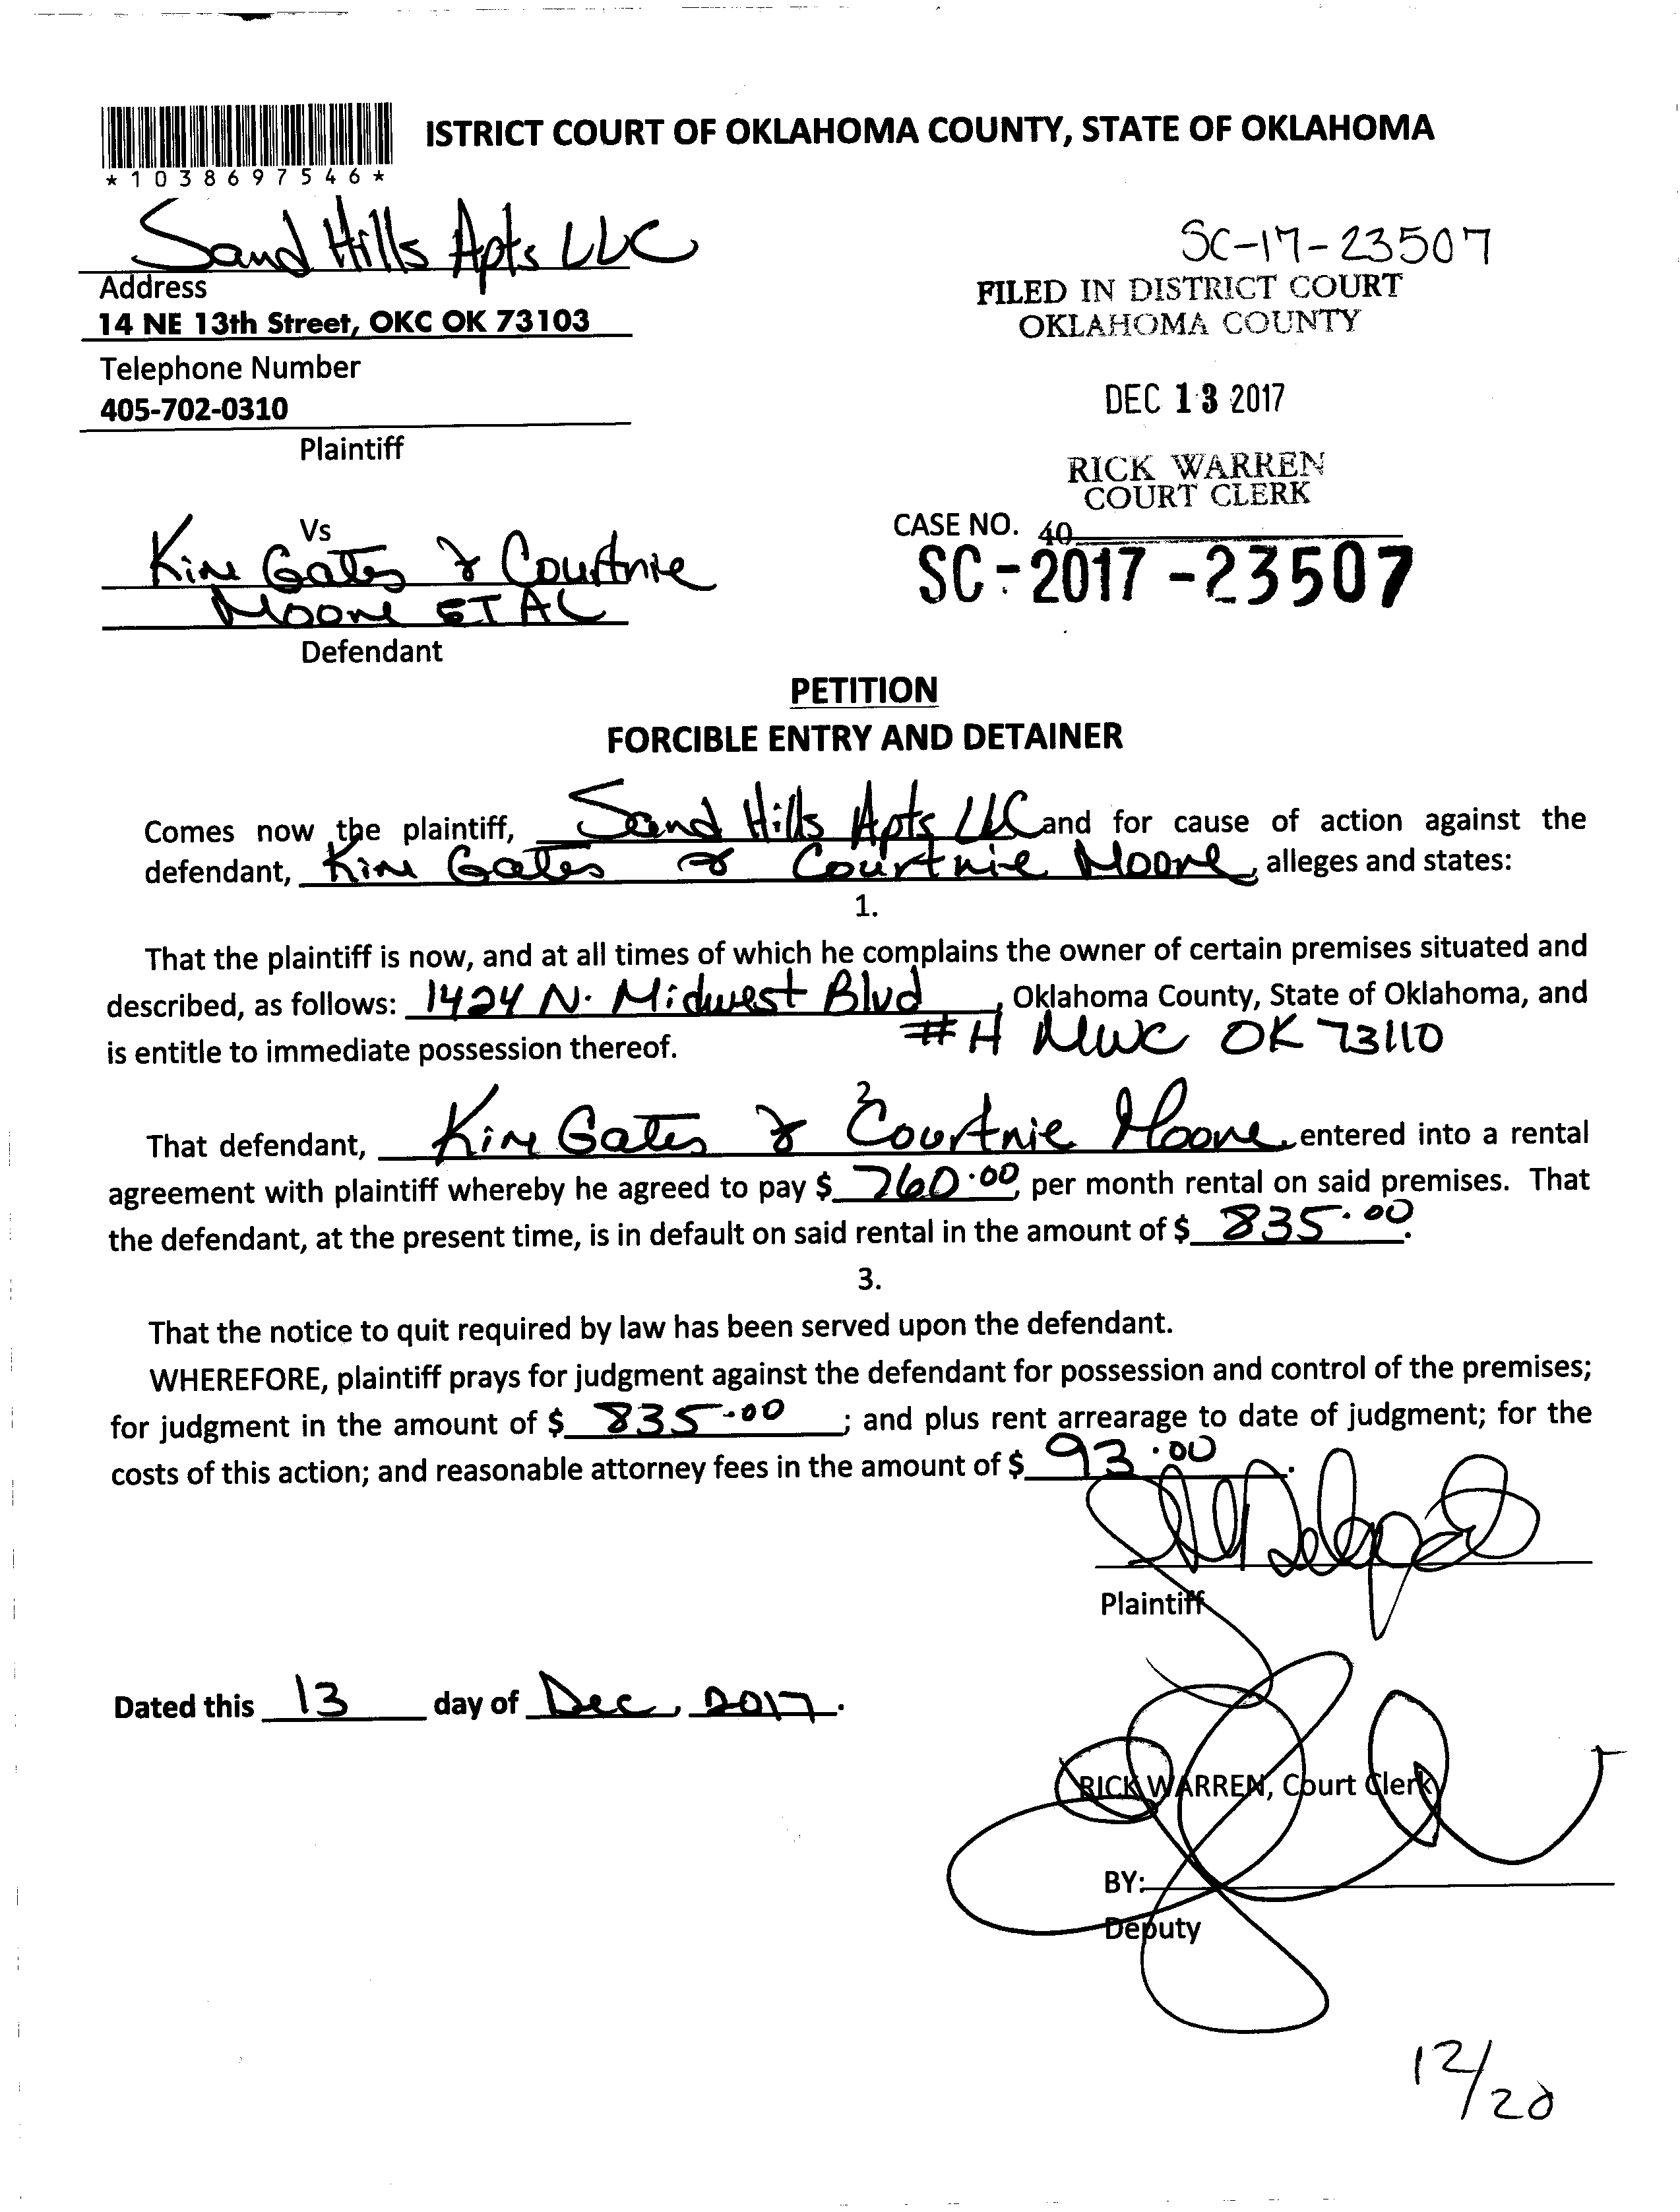 ISTRICT COURT OF OKLAHOMA COUNTY, STATE OF OKLAHOMA
*1038697546*
Sand Hills Apts LLC
SC-17-23507
Address
FILED IN DISTRICT COURT
14 NE 13th Street, OKC OK 73103
OKLAHOMA COUNTY
Telephone Number
405-702-0310
DEC 13 2017
Plaintiff
RICK WARREN
COURT CLERK
Vs
CASE NO. 40
Kim Gates & Courtnie
SC-2017-23507
Moore ET AL
Defendant
PETITION
FORCIBLE ENTRY AND DETAINER
Comes now the plaintiff, Sand Hills Apts LLC and for cause of action against the
defendant, Kim Gates & Courtnie Moore, alleges and states:
1.
That the plaintiff is now, and at all times of which he complains the owner of certain premises situated and
described, as follows: 1424 N. Midwest Blvd, Oklahoma County, State of Oklahoma, and
#H MWC OK 73110
is entitle to immediate possession thereof.
2.
That defendant, Kim Gates & Courtnie Moore entered into a rental
agreement with plaintiff whereby he agreed to pay $ 760.00, per month rental on said premises. That
the defendant, at the present time, is in default on said rental in the amount of $ 835.00.
3.
That the notice to quit required by law has been served upon the defendant.
WHEREFORE, plaintiff prays for judgment against the defendant for possession and control of the premises;
for judgment in the amount of $ 835.00; and plus rent arrearage to date of judgment; for the
costs of this action; and reasonable attorney fees in the amount of $ 93.00.
Plaintiff
Dated this 13 day of Dec, 2017.
RICK WARREN, Court Clerk
BY:
Deputy
12/20